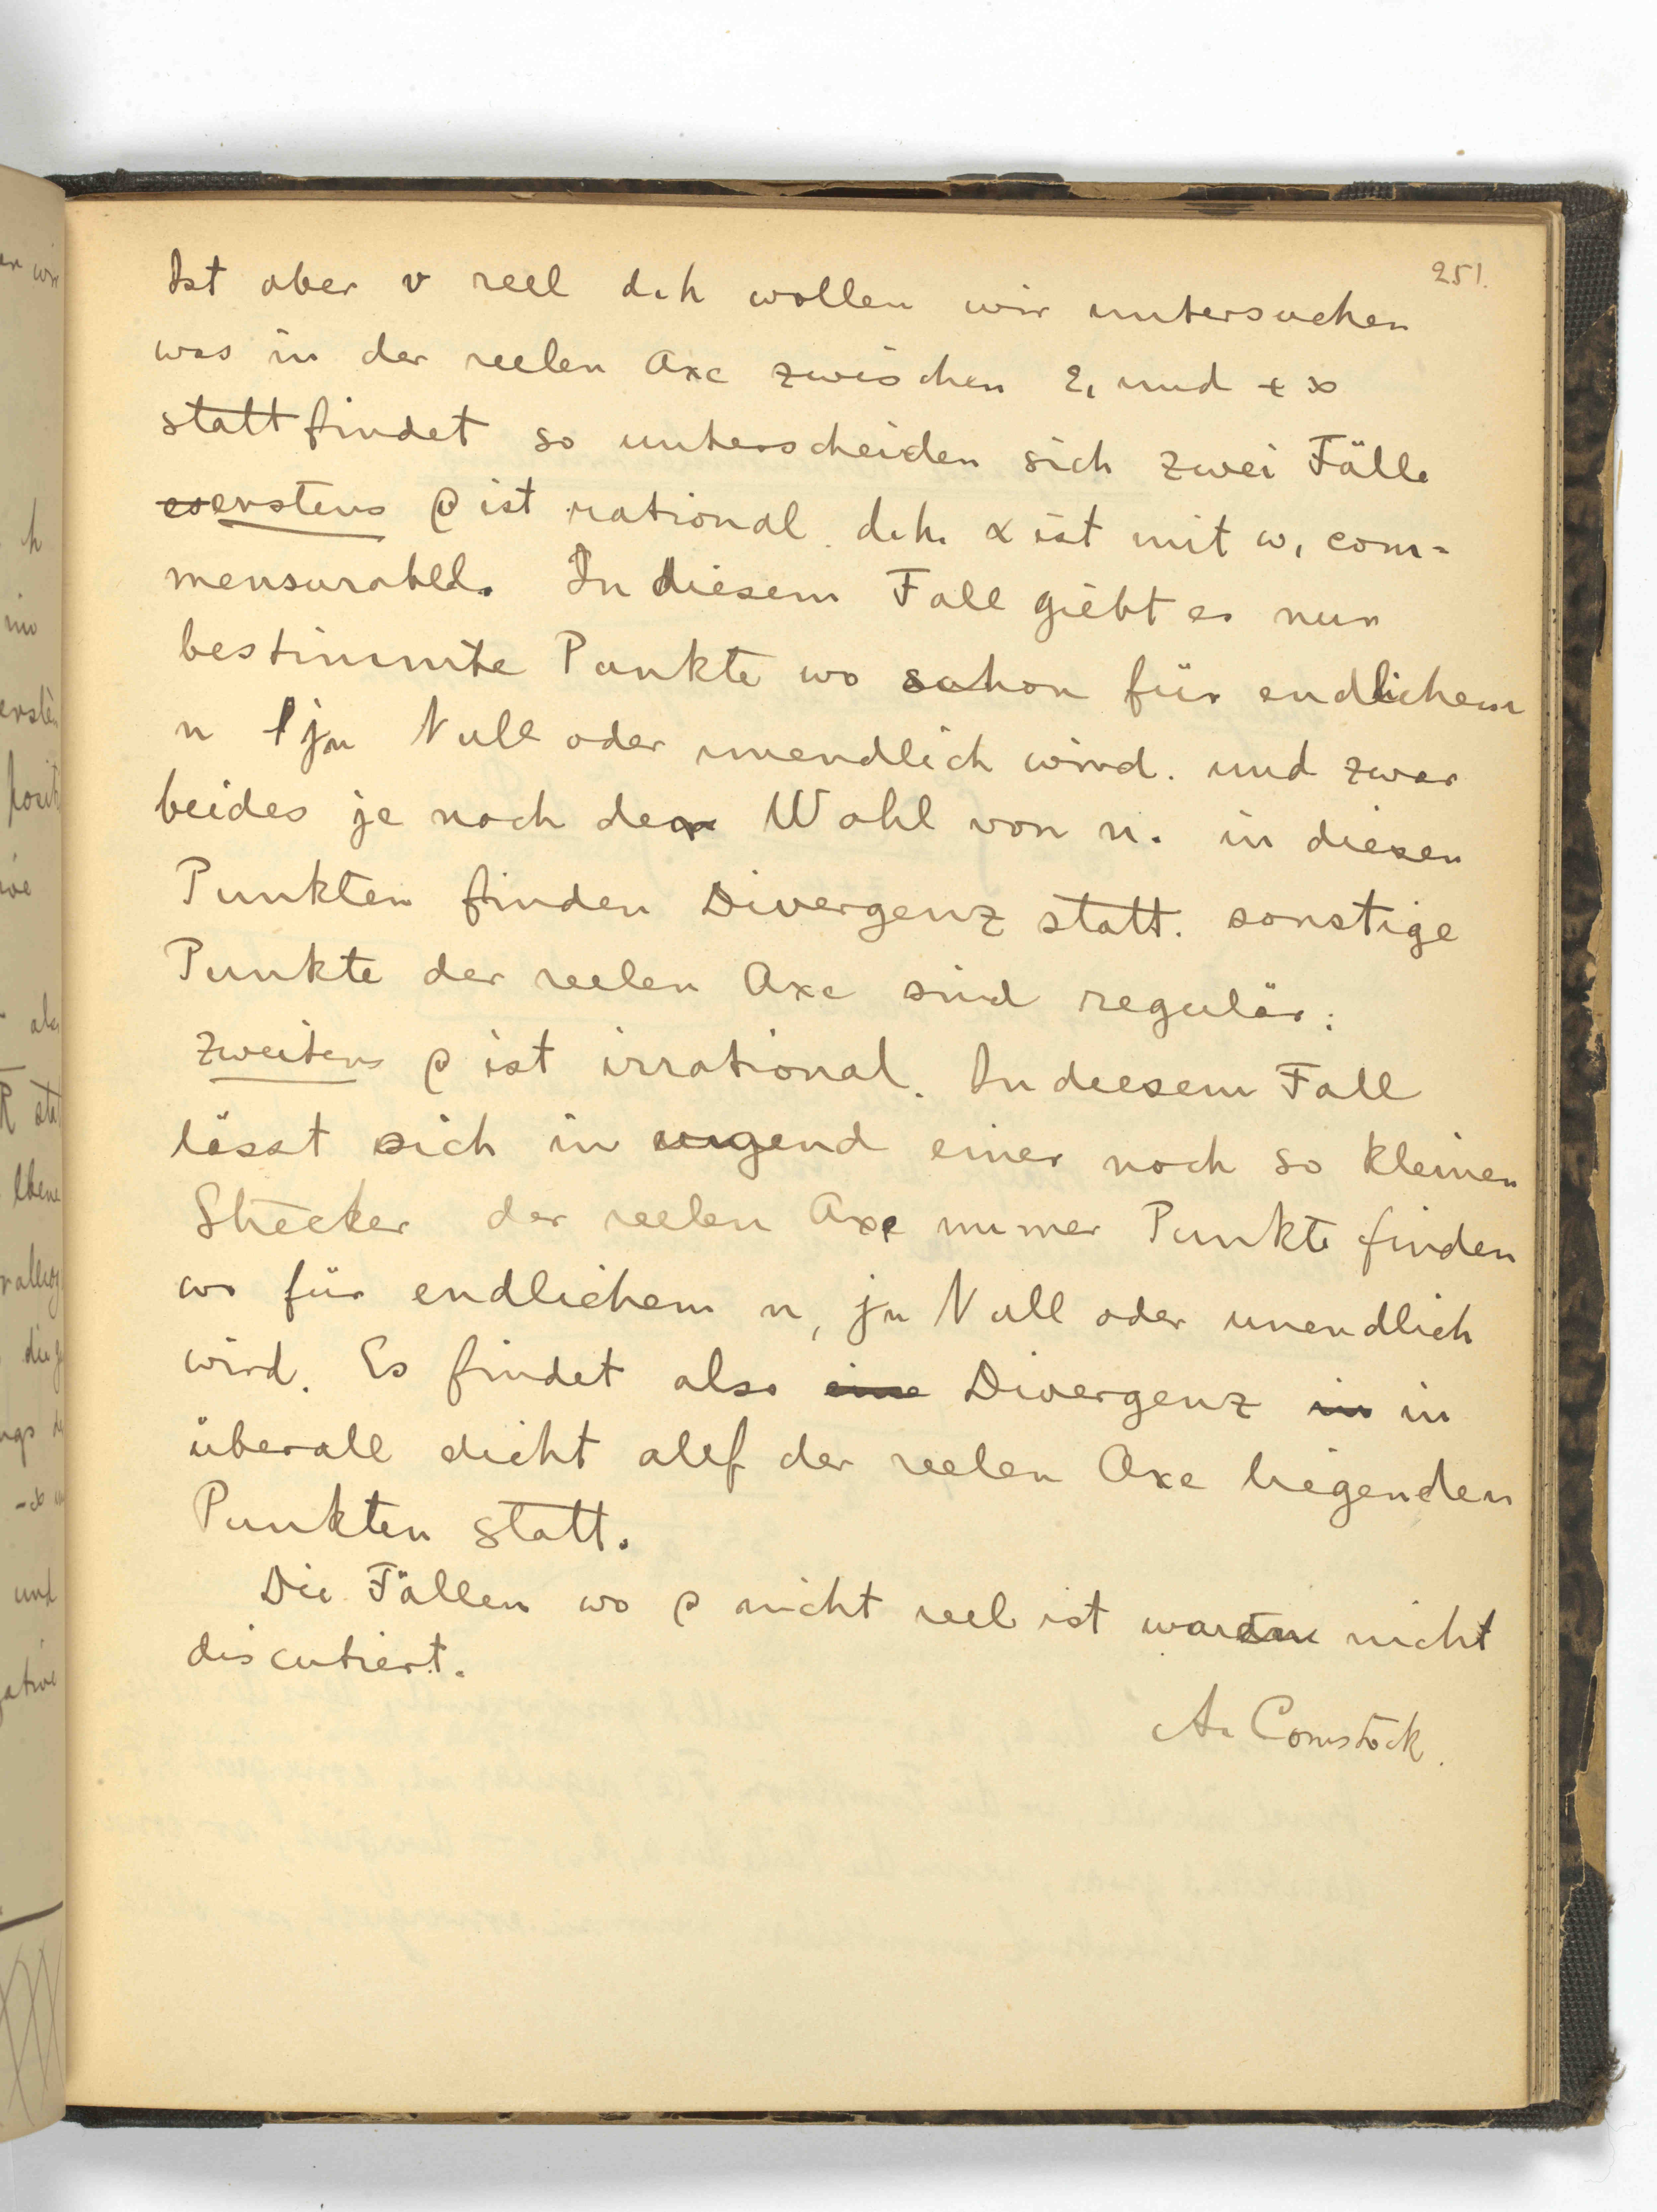 251.
Ist aber v reel d.h wollen wir untersuchen
was in der reelen Axe zwischen e, und + ∞
stattfindet so unterscheiden sich zwei Fälle
erstens ρ ist rational. d.h. α ist mit ω, com-
mensurabel. In diesem Fall giebt es nun
bestimmte Punkte wo schon für endlichem
n jn Null oder unendlich wird. und zwar
beides je nach der Wahl von n. in diesen
Punkten finden Divergenz statt. sonstige
Punkte der reelen Axe sind regulär.
zweitens ρ ist irrational. In diesem Fall
lässt sich in irgend einer noch so kleinen
Strecker der reelen Axe immer Punkte finden
wo für endlichem n, jn Null oder unendlich
wird. Es findet also eine Divergenz in in
überall dicht auf der reelen Axe liegenden
Punkten statt.
Die Fällen wo ρ nicht reel ist warden nicht
discutiert.
A. Comstock.